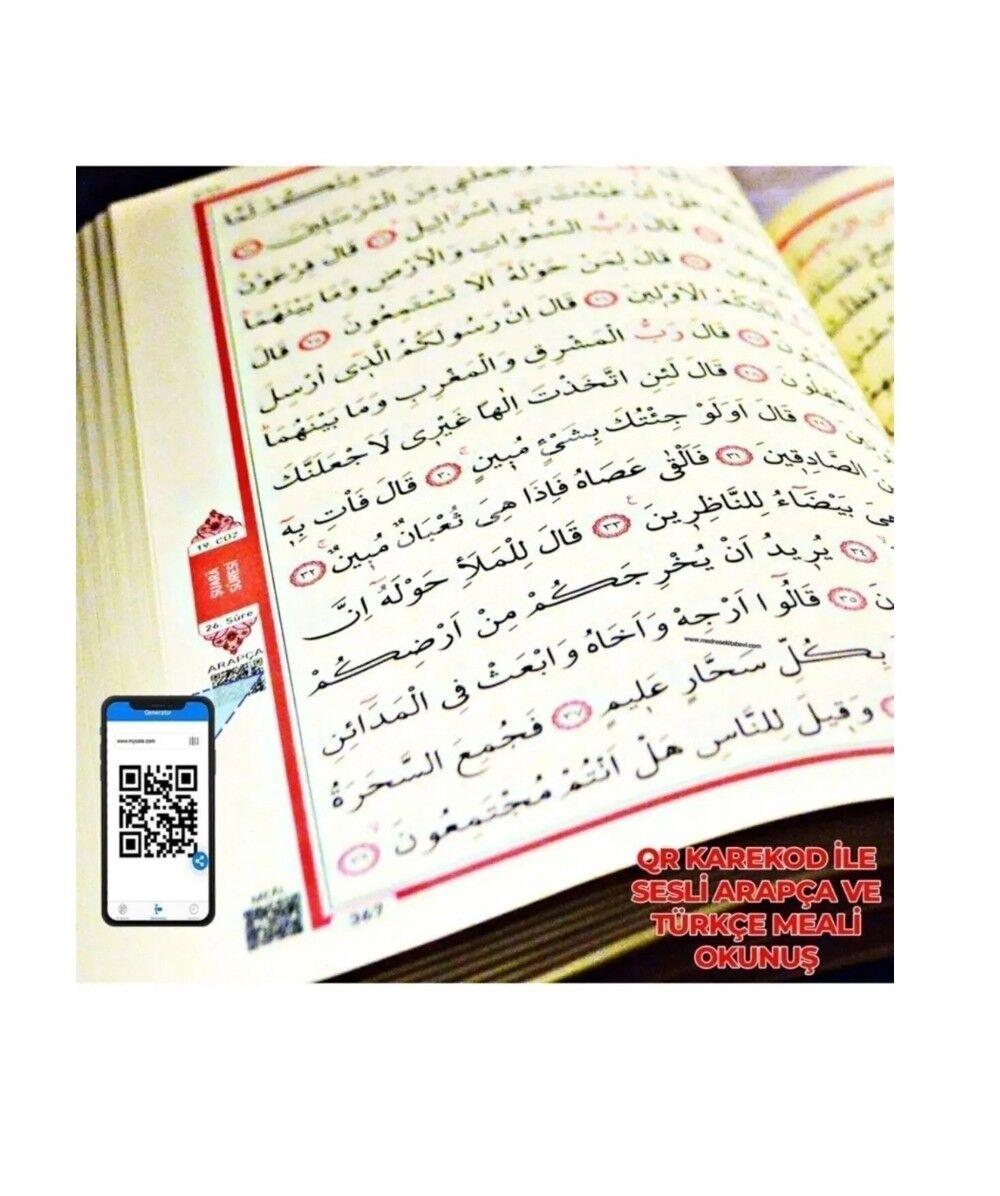 لَمَّا
مِنَ الْمُرْسَلِينَ ٢١
اَنْ عَبَّدْتَ بَنِٓي اِسْرَٓائِيلَ ٢٢ قَالَ فِرْعَوْنُ
قَالَ رَبُّ السَّمٰوَاتِ وَالْاَرْضِ وَمَا بَيْنَهُمَا
قَالَ لِمَنْ حَوْلَهُٓ اَلَا تَسْتَمِعُونَ ٢٥ قَالَ
الْاَوَّلِينَ ٢٦ قَالَ اِنَّ رَسُولَكُمُ الَّذِٓي اُرْسِلَ
٢٧ قَالَ رَبُّ الْمَشْرِقِ وَالْمَغْرِبِ وَمَا بَيْنَهُمَا
تَعْقِلُونَ ٢٨ قَالَ لَئِنِ اتَّخَذْتَ اِلٰهًا غَيْرِي لَاَجْعَلَنَّكَ
٢٩ قَالَ اَوَلَوْ جِئْتُكَ بِشَيْءٍ مُبِينٍ ٣٠ قَالَ فَأْتِ بِهِٓ
الصَّادِقِينَ ٣١ فَاَلْقٰى عَصَاهُ فَاِذَا هِيَ ثُعْبَانٌ مُبِينٌ ٣٢
هِيَ بَيْضَٓاءُ لِلنَّاظِرِينَ ٣٣ قَالَ لِلْمَلَاِ حَوْلَهُٓ اِنَّ
٣٤ يُرِيدُ اَنْ يُخْرِجَكُمْ مِنْ اَرْضِكُمْ
٣٥ قَالُٓوا اَرْجِهْ وَاَخَاهُ وَابْعَثْ فِي الْمَدَٓائِنِ
بِكُلِّ سَحَّارٍ عَلِيمٍ ٣٧ فَجُمِعَ السَّحَرَةُ
وَقِيلَ لِلنَّاسِ هَلْ اَنْتُمْ مُجْتَمِعُونَ ٣٩
19. CÜZ
ŞUARA
SÛRESİ
26. Sûre
ARAPÇA
MEAL
367
www.medresekitabevi.com
Generator
www.mysite.com
QR KAREKOD İLE
SESLİ ARAPÇA VE
TÜRKÇE MEALİ
OKUNUŞ